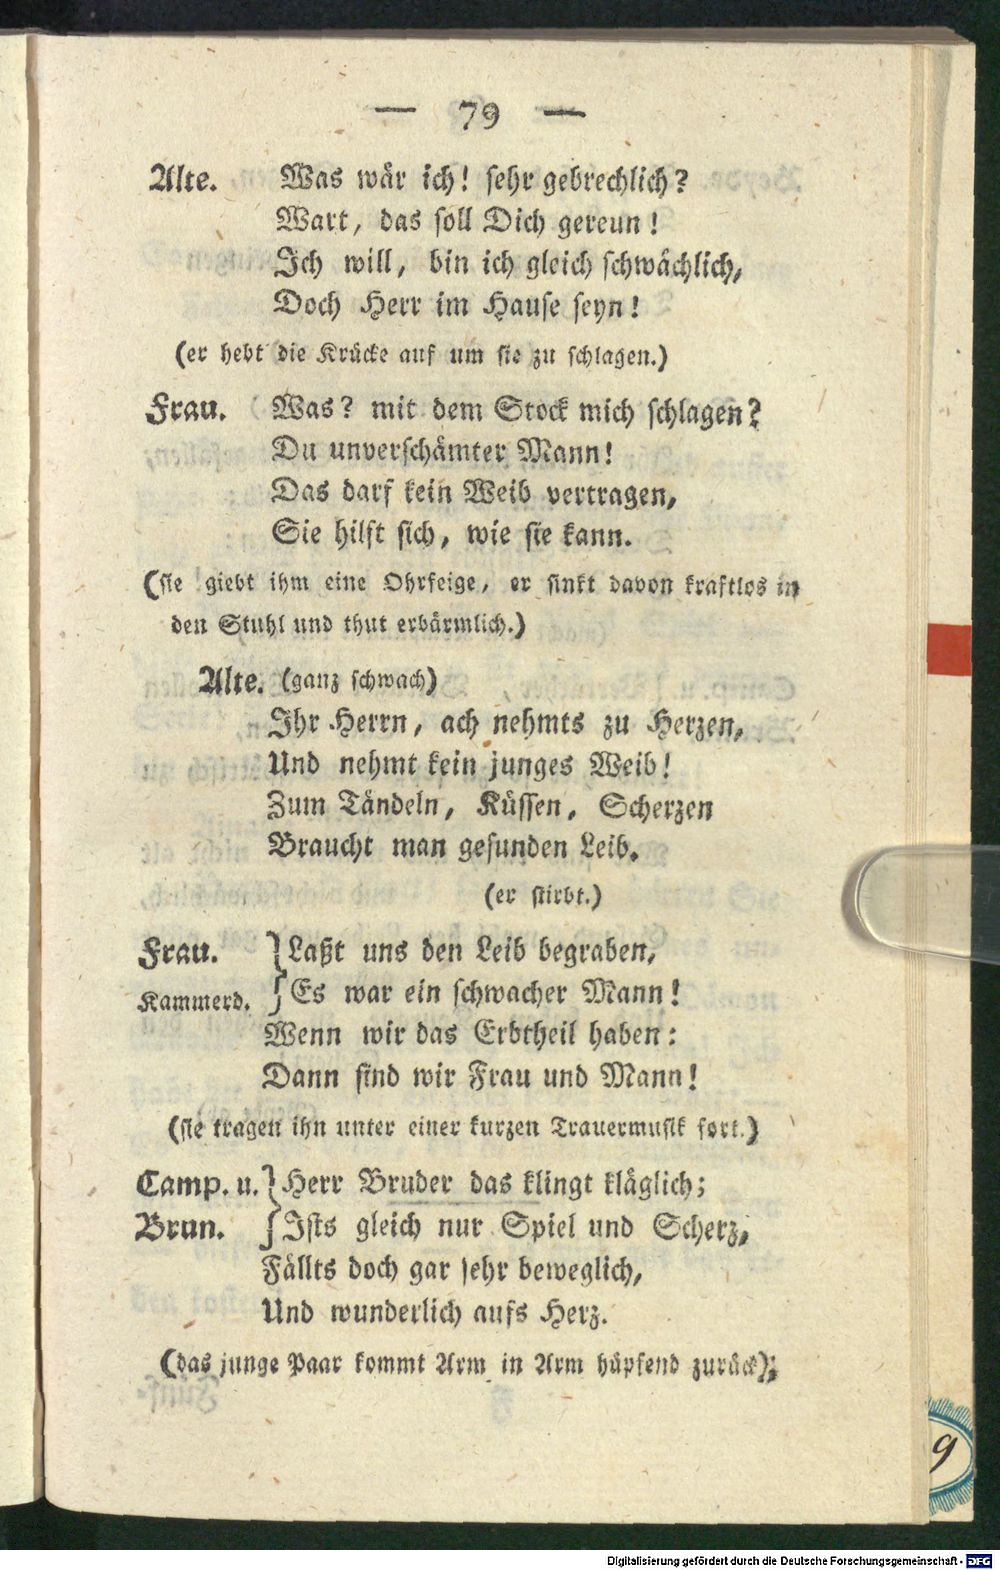 — 79 —
Alte. Was wär ich! sehr gebrechlich?
Wart, das soll Dich gereun!
Ich will, bin ich gleich schwächlich,
Doch Herr im Hause seyn!
(er hebt die Krücke auf um sie zu schlagen.)
Frau. Was? mit dem Stock mich schlagen?
Du unverschämter Mann!
Das darf kein Weib vertragen,
Sie hilft sich, wie sie kann.
(sie giebt ihm eine Ohrfeige, er sinkt davon kraftlos in
den Stuhl und thut erbärmlich.)
Alte. (ganz schwach)
Ihr Herrn, ach nehmts zu Herzen,
Und nehmt kein junges Weib!
Zum Tändeln, Küssen, Scherzen
Braucht man gesunden Leib.
(er stirbt.)
Frau. } Laßt uns den Leib begraben,
Kammerd. } Es war ein schwacher Mann!
Wenn wir das Erbtheil haben:
Dann sind wir Frau und Mann!
(sie tragen ihn unter einer kurzen Trauermusik fort.)
Camp. u. } Herr Bruder das klingt kläglich;
Brun. } Ists gleich nur Spiel und Scherz,
Fällts doch gar sehr beweglich,
Und wunderlich aufs Herz.
(das junge Paar kommt Arm in Arm hüpfend zurück);
9
Digitalisierung gefördert durch die Deutsche Forschungsgemeinschaft - DFG